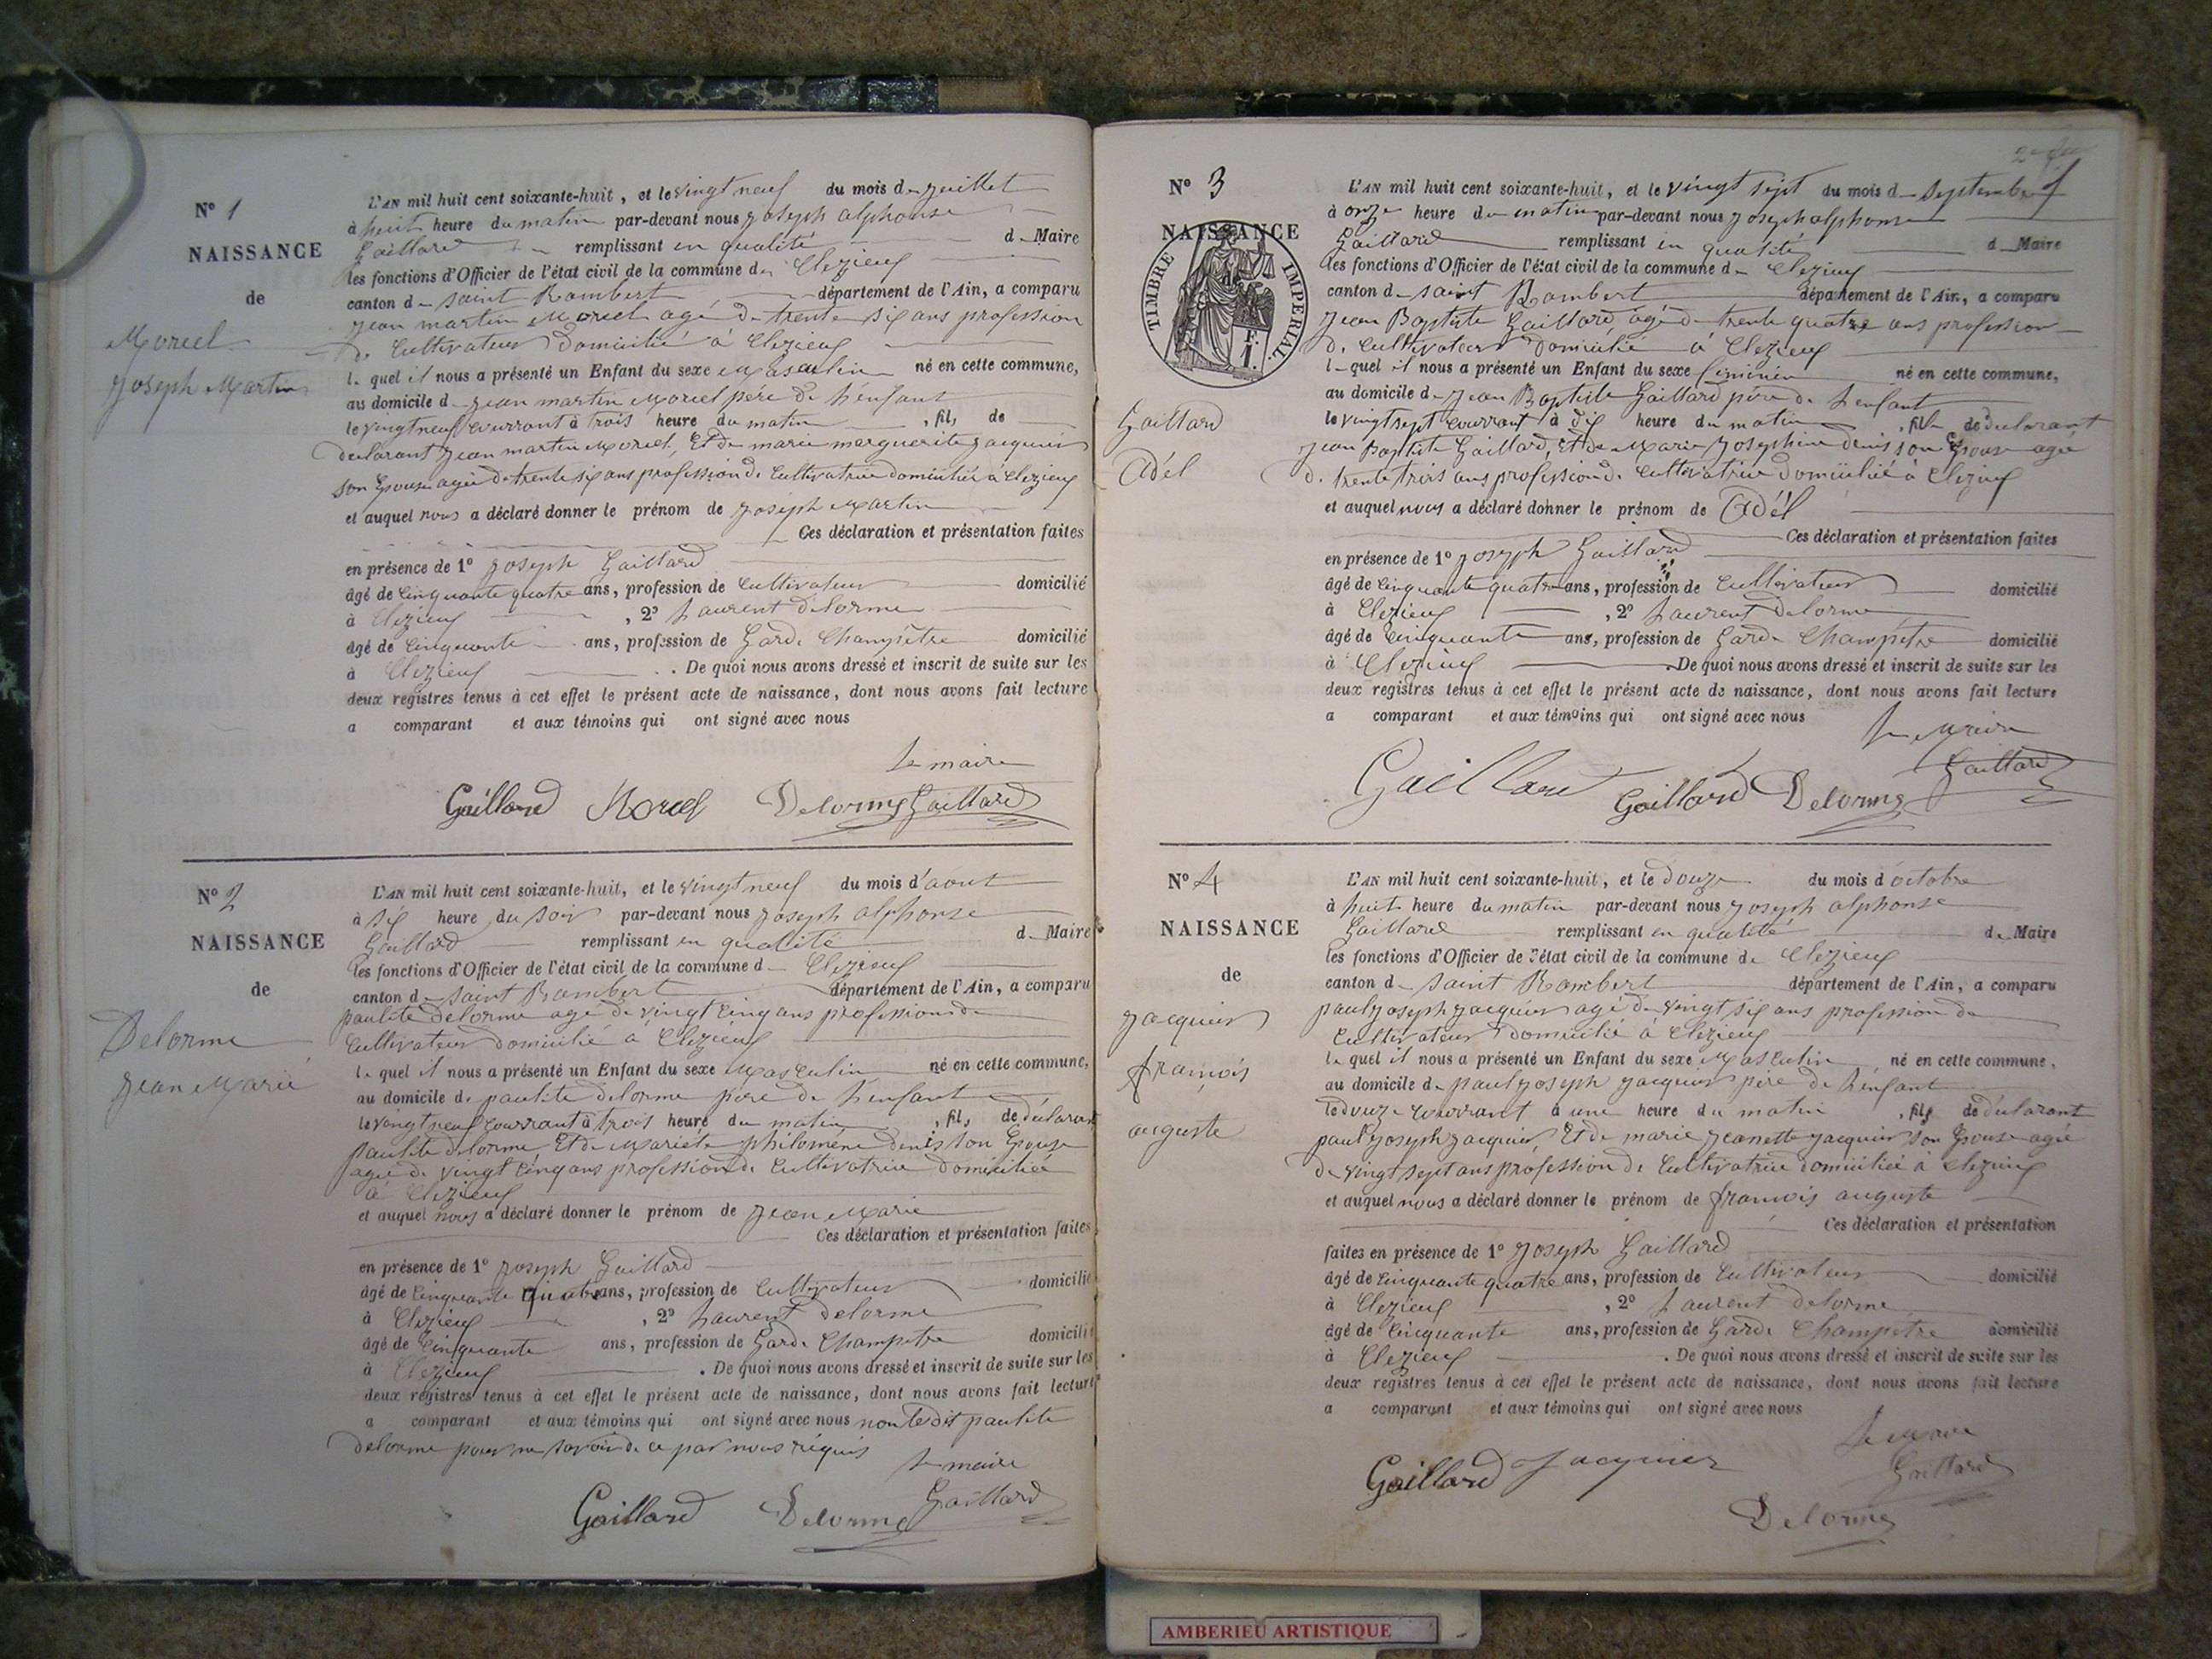 N° 1
NAISSANCE
de
Morel
Joseph Martin
L'AN mil huit cent soixante-huit, et le vingt neuf du mois de juillet
à huit heure du matin par-devant nous joseph alphonse
Gaillard remplissant en qualité de Maire
les fonctions d'Officier de l'état civil de la commune de Clezieu
canton de saint Rambert département de l'Ain, a comparu
jean martin Morel agé de trente six ans profession
de Cultivateur domicilié à Clezieu
le quel il nous a présenté un Enfant du sexe Masculin né en cette commune,
au domicile de jean martin Morel père de l'enfant
le vingt neuf courrant à trois heure du matin, fils de
declarant jean martin Morel, Et de marie marguerite jacquier
son Epouse agée de trente six ans profession de Cultivatrice domiciliée à Clezieu
et auquel nous a déclaré donner le prénom de joseph Martin
Ces déclaration et présentation faites
en présence de 1° joseph Gaillard
âgé de Cinquante quatre ans, profession de Cultivateur domicilié
à Clezieu, 2° Laurent Delorme
âgé de Cinquante ans, profession de Garde Champêtre domicilié
à Clezieu. De quoi nous avons dressé et inscrit de suite sur les
deux registres tenus à cet effet le présent acte de naissance, dont nous avons fait lecture
a comparant et aux témoins qui ont signé avec nous
Le maire
Gaillard Morel Delorme Gaillard
N° 2
NAISSANCE
de
Delorme
Jean Marie
L'AN mil huit cent soixante-huit, et le vingt neuf du mois d'aout
à six heure du soir par-devant nous joseph alphonse
Gaillard remplissant en qualité de Maire
les fonctions d'Officier de l'état civil de la commune de Clezieu
canton de saint Rambert département de l'Ain, a comparu
paulite delorme agé de vingt cinq ans profession de
Cultivateur domicilié à Clezieu
le quel il nous a présenté un Enfant du sexe Masculin né en cette commune,
au domicile de paulite delorme père de l'enfant
le vingt neuf courrant à trois heure du matin, fils de déclarant
paulite delorme Et de Mariete philomène denis son Epouse
agée de vingt cinq ans profession de Cultivatrice domiciliée
à Clezieu
et auquel nous a déclaré donner le prénom de jean Marie
Ces déclaration et présentation faites
en présence de 1° joseph Gaillard
âgé de Cinquante quatre ans, profession de Cultivateur domicilié
à Clezieu, 2° Laurent delorme
âgé de Cinquante ans, profession de Garde Champetre domicilié
à Clezieu. De quoi nous avons dressé et inscrit de suite sur les
deux registres tenus à cet effet le présent acte de naissance, dont nous avons fait lecture
a comparant et aux témoins qui ont signé avec nous non ledit paulite
delorme pour ne savoir de ce par nous réquis
Le maire
Gaillard Delorme Gaillard
N° 3
NAISSANCE
TIMBRE IMPERIAL
1 F.
Gaillard
Adél
L'AN mil huit cent soixante-huit, et le vingt sept du mois de septembre
à onze heure du matin par-devant nous joseph alphonse
Gaillard remplissant en qualité de Maire
les fonctions d'Officier de l'état civil de la commune de Clezieu
canton de saint Rambert département de l'Ain, a comparu
jean Baptiste Gaillard, agé de trente quatre ans profession
de Cultivateur domicilié à Clezieu
le quel il nous a présenté un Enfant du sexe féminin né en cette commune,
au domicile de jean Baptiste Gaillard père de l'enfant
le vingt sept courrant à dix heure du matin, fille de declarant
jean Baptiste Gaillard, Et de Marie josephine denis son Epouse agée
de trente trois ans profession de cultivatrice domicilié à Clezieu
et auquel nous a déclaré donner le prénom de Adél
Ces déclaration et présentation faites
en présence de 1° joseph Gaillard
âgé de Cinquante quatre ans, profession de Cultivateur domicilié
à Clezieu, 2° Laurent delorme
âgé de Cinquante ans, profession de Garde Champétre domicilié
à Clezieu. De quoi nous avons dressé et inscrit de suite sur les
deux registres tenus à cet effet le présent acte de naissance, dont nous avons fait lecture
a comparant et aux témoins qui ont signé avec nous
Le Maire
Gaillard Gaillard Delorme Gaillard
N° 4
NAISSANCE
de
jacquier
françois
auguste
L'AN mil huit cent soixante-huit, et le douze du mois d'octobre
à huit heure du matin par-devant nous joseph alphonse
Gaillard remplissant en qualité de Maire
les fonctions d'Officier de l'état civil de la commune de Clezieu
canton de saint Rambert département de l'Ain, a comparu
paul joseph jacquier agé de vingt six ans profession de
Cultivateur domicilié à Clezieu
le quel il nous a présenté un Enfant du sexe Masculin né en cette commune,
au domicile de paul joseph jacquier père de l'enfant
le douze courrant à une heure du matin, fils de déclarant
paul joseph jacquier Et de marie jeanette jacquier son Epouse agée
de vingt sept ans profession de Cultivatrice domiciliée à Clezieu
et auquel nous a déclaré donner le prénom de françois auguste
Ces déclaration et présentation
faites en présence de 1° joseph Gaillard
âgé de Cinquante quatre ans, profession de Cultivateur domicilié
à Clezieu, 2° Laurent delorme
âgé de Cinquante ans, profession de Garde Champétre domicilié
à Clezieu. De quoi nous avons dressé et inscrit de suite sur les
deux registres tenus à cet effet le présent acte de naissance, dont nous avons fait lecture
a comparant et aux témoins qui ont signé avec nous
Le Maire
Gaillard Jacquier Gaillard
Delorme
AMBERIEU ARTISTIQUE